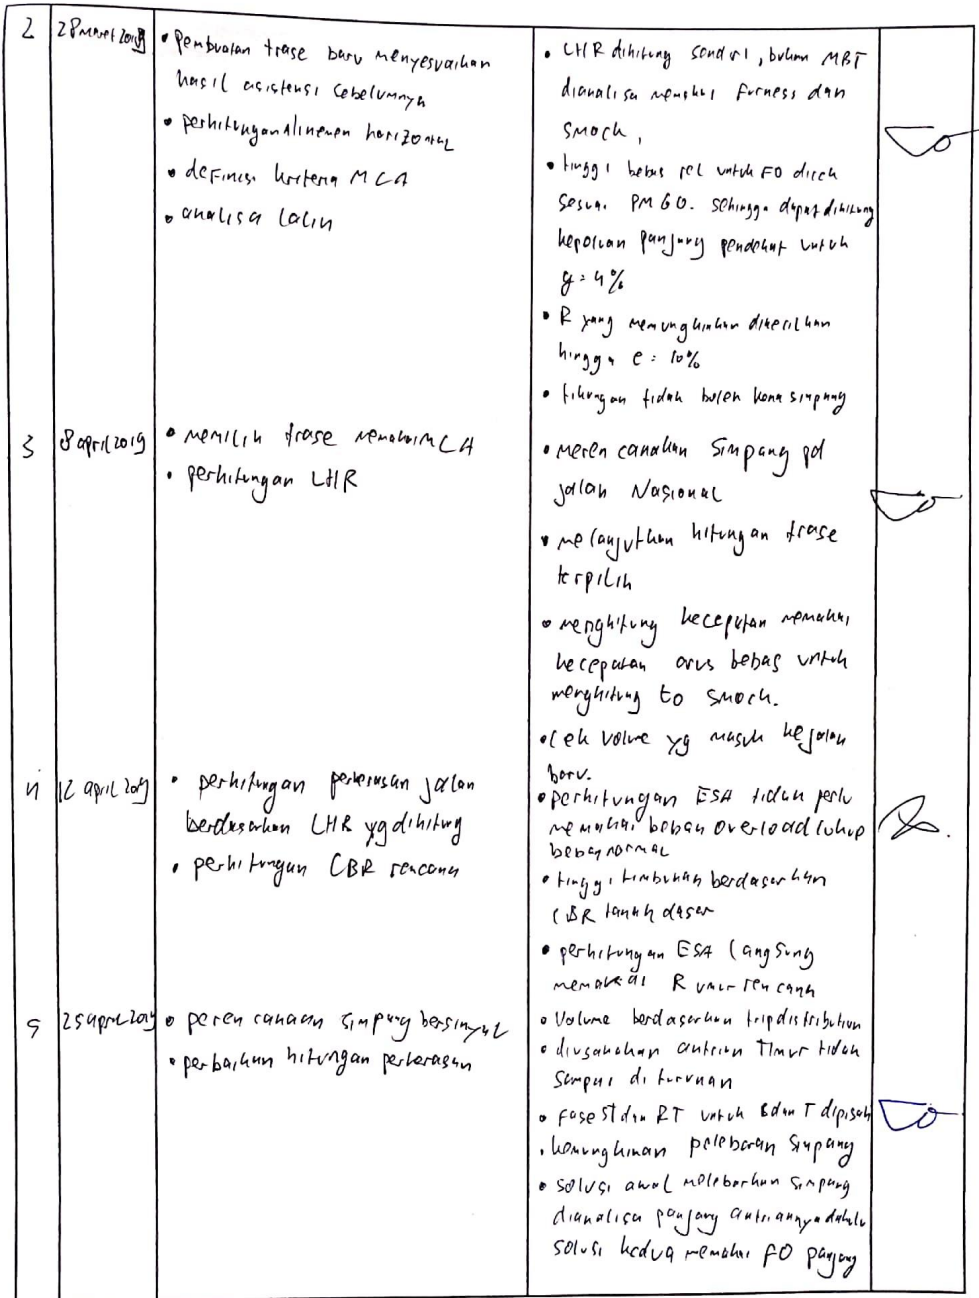 2
28 Maret 2019
• Pembuatan trase baru menyesuaikan
hasil asistensi sebelumnya
• perhitungan Alinemen horizontal
• definisi kriteria MCA
• analisa Lalin
• LHR dihitung sendiri, bukan MBT
dianalisa memakai furness dan
Smock,
• tinggi bebas rel untuk FO dicek
sesuai PM 60. sehingga dapat dihitung
keperluan panjang pendekat untuk
g = 4%
• R yang memungkinkan dikecilkan
hingga e = 10%
• tikungan tidak boleh kena simpang
3
8 april 2019
• memilih trase memakai MCA
• perhitungan LHR
• merencanakan Simpang pd
jalan Nasional
• melanjutkan hitungan trase
terpilih
• menghitung kecepatan memakai
kecepatan arus bebas untuk
menghitung to smock.
• cek volume yg masuk ke jalan
baru.
4
12 april 2019
• perhitungan perkerasan jalan
berdasarkan LHR yg dihitung
• perhitungan CBR rencana
• perhitungan ESA tidak perlu
memakai beban overload cukup
beban normal
• tinggi timbunan berdasarkan
CBR tanah dasar
• perhitungan ESA langsung
memakai R umur rencana
5
25 april 2019
• perencanaan simpang bersinyal
• perbaikan hitungan perkerasan
• Volume berdasarkan trip distribution
• diusahakan antrian Timur tidak
sampai di turunan
• fase ST dan RT untuk B dan T dipisah
• kemungkinan pelebaran simpang
• solusi awal melebarkan simpang
dianalisa panjang antriannya dahulu
solusi kedua memakai FO panjang